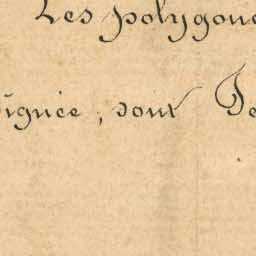 Les polygone
signée, sont De